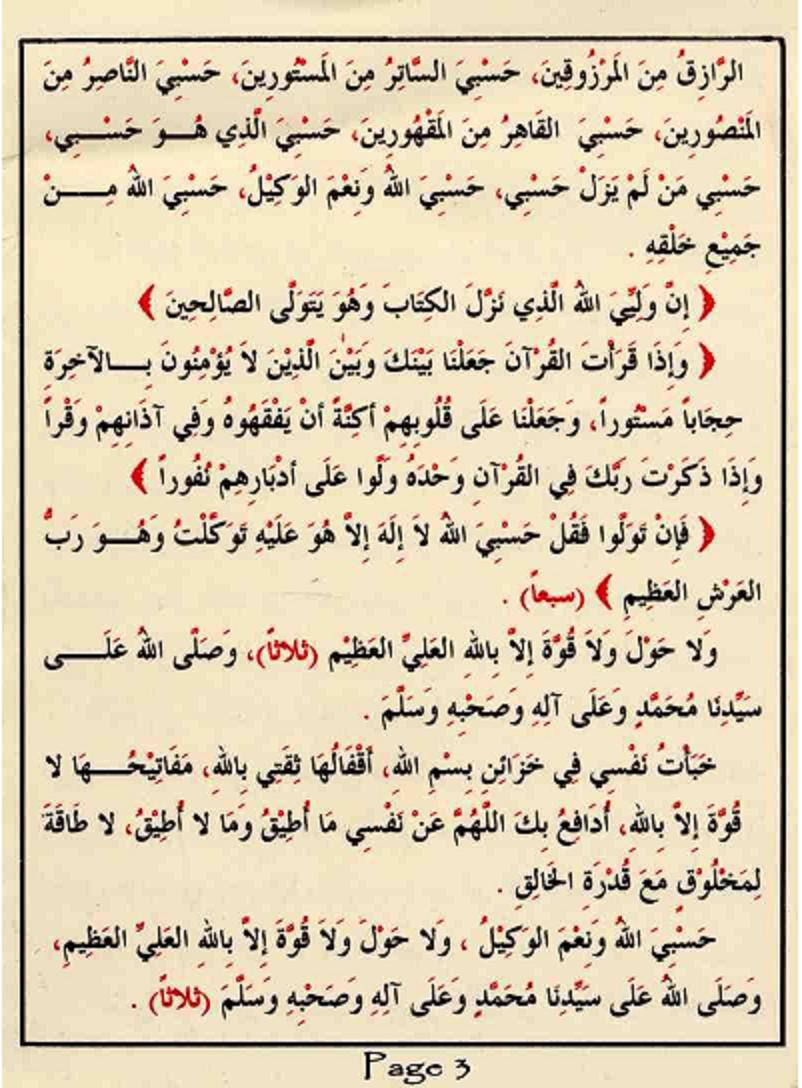 الرَّازِقُ مِنَ المَرْزُوقِينَ، حَسْبِيَ السَّاتِرُ مِنَ المَسْتُورِينَ، حَسْبِيَ النَّاصِرُ مِنَ
المَنْصُورِينَ، حَسْبِيَ القَاهِرُ مِنَ المَقْهُورِينَ، حَسْبِيَ الَّذِي هُـــوَ حَسْـــبِي،
حَسْبِي مَنْ لَمْ يَزَلْ حَسْبِي، حَسْبِيَ اللهُ وَنِعْمَ الوَكِيْلُ، حَسْبِيَ اللهُ مِـــــنْ
جَمِيْعِ خَلْقِهِ .
﴿ إِنَّ وَلِيِّيَ اللهُ الَّذِي نَزَّلَ الكِتَابَ وَهُوَ يَتَوَلَّى الصَّالِحِينَ ﴾
﴿ وَإِذَا قَرَأْتَ القُرْآنَ جَعَلْنَا بَيْنَكَ وَبَيْنَ الَّذِيْنَ لاَ يُؤْمِنُونَ بِـــالآخِرَةِ
حِجَاباً مَسْتُوراً، وَجَعَلْنَا عَلَى قُلُوبِهِمْ أَكِنَّةً أَنْ يَفْقَهُوهُ وَفِي آذَانِهِمْ وَقْراً
وَإِذَا ذَكَرْتَ رَبَّكَ فِي القُرْآنِ وَحْدَهُ وَلَّوا عَلَى أَدْبَارِهِمْ نُفُوراً ﴾
﴿ فَإِنْ تَوَلَّوا فَقُلْ حَسْبِيَ اللهُ لاَ إِلَهَ إِلاَّ هُوَ عَلَيْهِ تَوَكَّلْتُ وَهُـــوَ رَبُّ
العَرْشِ العَظِيمِ ﴾ (سبعاً) .
وَلا حَوْلَ وَلاَ قُوَّةَ إِلاَّ بِاللهِ العَلِيِّ العَظِيْمِ (ثلاثاً)، وَصَلَّى اللهُ عَلَـــــى
سَيِّدِنَا مُحَمَّدٍ وَعَلَى آلِهِ وَصَحْبِهِ وَسَلَّمَ .
خَبَأْتُ نَفْسِي فِي خَزَائِنِ بِسْمِ اللهِ، أَقْفَالُهَا ثِقَتِي بِاللهِ، مَفَاتِيْحُـــهَا لا
قُوَّةَ إِلاَّ بِاللهِ، أُدَافِعُ بِكَ اللَّهُمَّ عَنْ نَفْسِي مَا أُطِيْقُ وَمَا لا أُطِيْقُ، لا طَاقَةَ
لِمَخْلُوْقٍ مَعَ قُدْرَةِ الخَالِقِ .
حَسْبِيَ اللهُ وَنِعْمَ الوَكِيْلُ ، وَلا حَوْلَ وَلاَ قُوَّةَ إِلاَّ بِاللهِ العَلِيِّ العَظِيمِ،
وَصَلَى اللهُ عَلَى سَيِّدِنَا مُحَمَّدٍ وَعَلَى آلِهِ وَصَحْبِهِ وَسَلَّمَ (ثلاثاً) .
Page 3